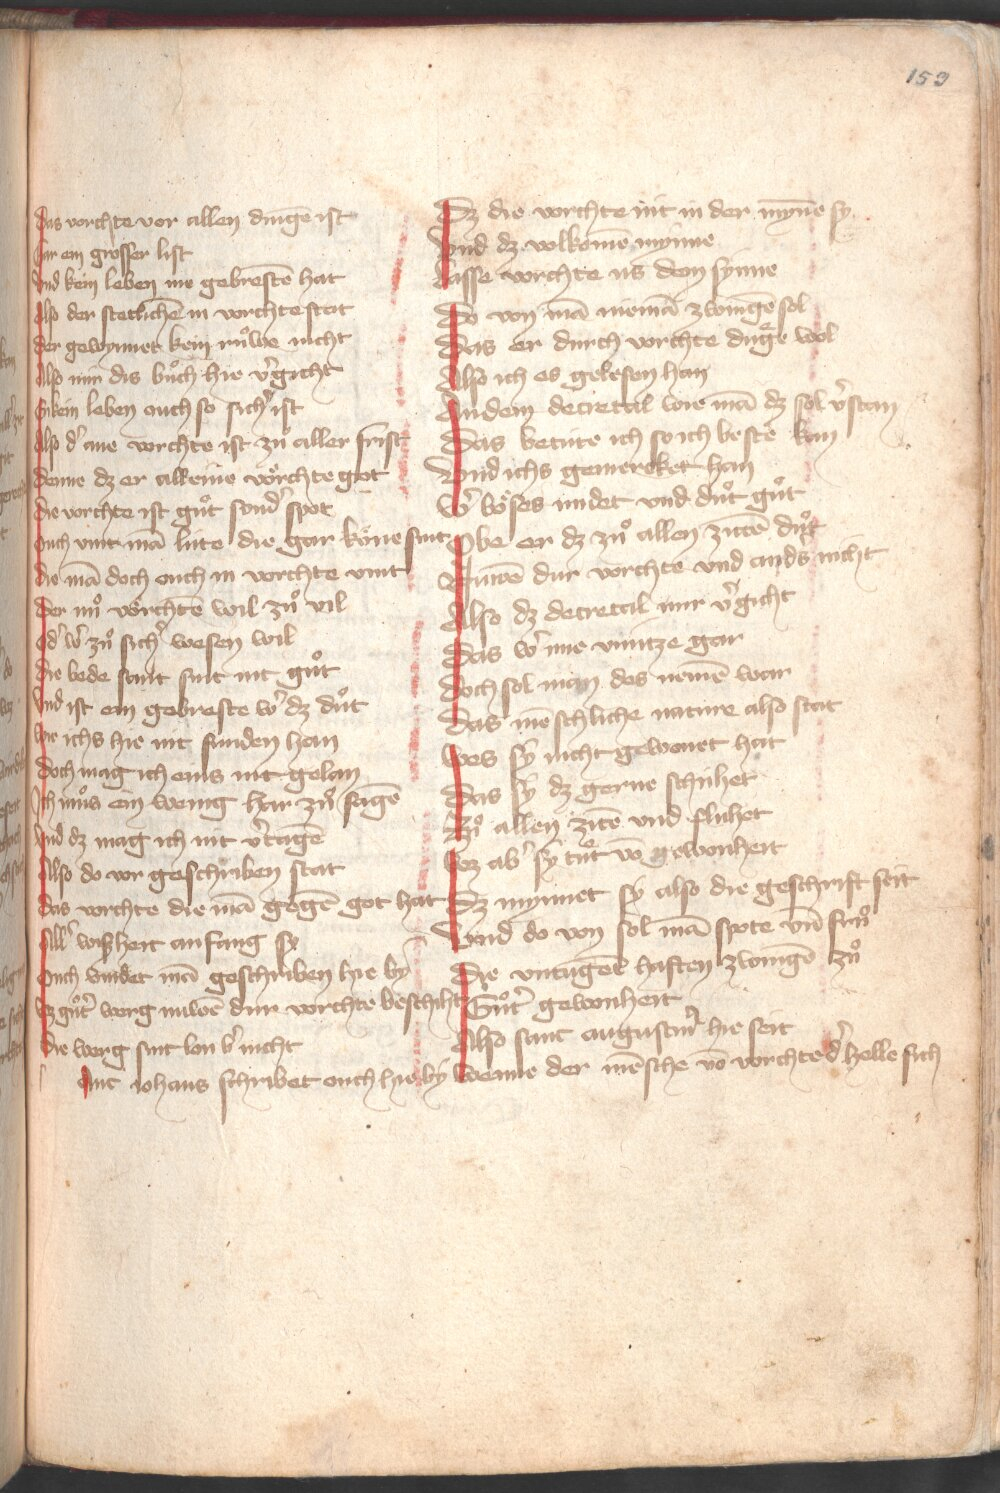 159
Das vorchte vor allen dingē ist
Gar ein grosser list
Vnd kein leben nie gebrestē hat
Also der stetlichē in vorchte stat
Der gewynnet kein růwe nicht
Also mir dis bůch hie v̓gicht
Enkein leben ouch so sich̓ ist
Also d̓ ane vorchte ist zů aller frist
Denne dz er alleine vo̍rchte got
Die vorchte ist gůt sund̓ spot
Ouch vint mā lúte die gar köne sint
Die mā doch ouch in vorchte vint
Der nů vörchtē wil zů vil
Od̓ w̓ zů sich̓ wesen wil
Die bede sant sint nit gůt
Vnd ist ein gebreste w̓ dz důt
Wie ichs hie nit funden han
Doch mag ich eins nit gelan
Ich můs ein wenig har zů sagē
Vnd dz mag ich nit v̓tagē
Also do vor geschriben stat
Das vorchte die mā gegē got hat
All̓ wißheit anfang sy
Ouch vindet mā geschriben hie by
Wz gůt̓ werg nuwē dur vorchte beschiht
Die werg sint lon b̓ nicht
Sant iohans schribet ouch hie by
Dz die vorchte nit in der mynne sy
Vnd dz volkomē mynne
Lasse vorchte us dem synne
Do von mā niemā zwingē sol
Das er durch vorchte dúge wol
Also ich es gelesen han
An dem decretal wie mā dz sol v̓stan
Das betúte ich so ich beste kan
Vnd ichs gemercket han
W̓ böses midet vnd důt gůt
Obe er dz zů allen zitē důt
Nuwē dur vorchte vnd anders nicht
Also dz decretal mir v̓gicht
Das w̓ ime vnnútze gar
Doch sol man des nemē war
Das mēschliche nature also stat
Wes sy nicht gewonet hat
Das sy dz gerne schúhet
Zů allen zitē vnd flúhet
Wz ab̓ sy tůt vō gewonheit
Dz mynnet sy also die geschrift seit
Vnd do von sol mā spote vn̄ frů
Die vntugēt haften zwingē zů
Gůt̓ gewonheit
Also sant augustin̓ hie seit
Wenne der mēsche vō vorchte d̓ helle sich